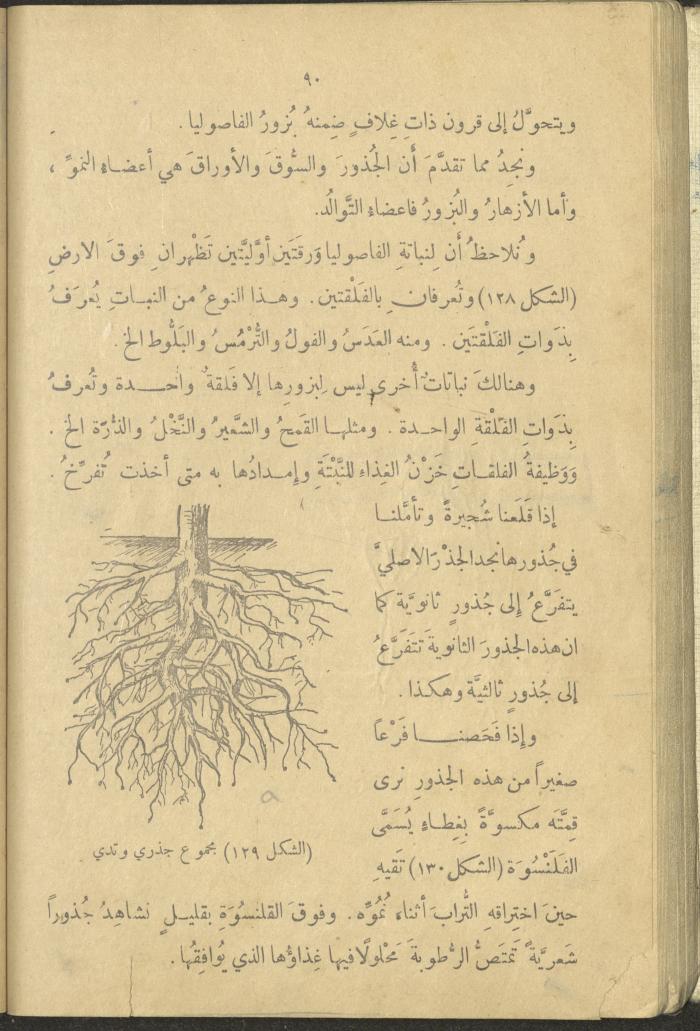 ٩٠
ويتحوَّلُ إلى قرون ذاتِ غِلافٍ ضِمنهُ بُزورُ الفاصوليا .
ونجِدُ مما تقدَّمَ أَن الجُذورَ والسُّوقَ والأوراقَ هي أعضاء النموِّ ،
وأما الأزهارُ والبُزورُ فاعضاء التَّوالُد.
ونُلاحظُ أَن لِنباتةِ الفاصوليا وَرقَتَينِ أوَّليَّتين تَظْهران فوقَ الارضِ
(الشكل ١٢٨) وتُعرفان بالفَلْقتين . وهذا النوعُ من النبات يُعرَفُ
بِذَواتِ الفَلْقتَين . ومنه العَدَسُ والفولُ والتُّرْمُسُ والبَلُّوط الخ .
وهنالكَ نباتاتٌ أُخرى ليس لِبزورِها إلا فَلقةٌ واحدة وتُعرفُ
بِذَواتِ الفَلْقةِ الواحدة . ومثلها القَمحُ والشَّعيرُ والنَّخْلُ والذُّرَة الخ .
وَوَظيفةُ الفلقات خَزْنُ الغِذاءِ للنَّبْتَةِ وإمدادُها به متى أخذت تُفرِّخُ .
إذا قَلَعنا شُجيرةً وتأمَّلنا
في جُذورها نجد الجذْرَ الاصليَّ
يتفَرَّعُ إلى جُذورٍ ثانويَّة كما
ان هذه الجذورَ الثانويةَ تَتَفَرَّعُ
إلى جُذورٍ ثالثيَّة وهكذا .
وإذا فَحَصنا فَرْعاً
صغيراً من هذه الجذورِ نرى
قِمَّتَه مكسوَّةً بِغِطاءٍ يُسَمَّى
القَلَنْسُوَة (الشكل ١٣٠) تَقيهِ
(الشكل ١٢٩) مجموع جذري وتدي
حينَ اختِراقهِ التُّرابَ أثناء نُمُوِّه . وفوقَ القلنسُوَةِ بقليلٍ نشاهِدُ جُذوراً
شَعريَّةً تَمتَصُّ الرُّطوبةَ مَحْلولًا فيها غِذاؤها الذي يُوافِقُها .